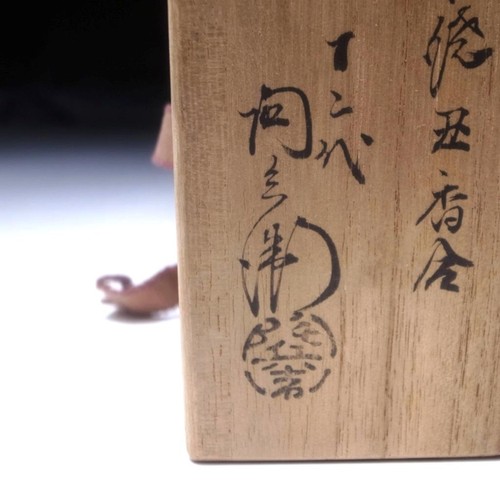 焼丑香合
十二代
陶兵衛